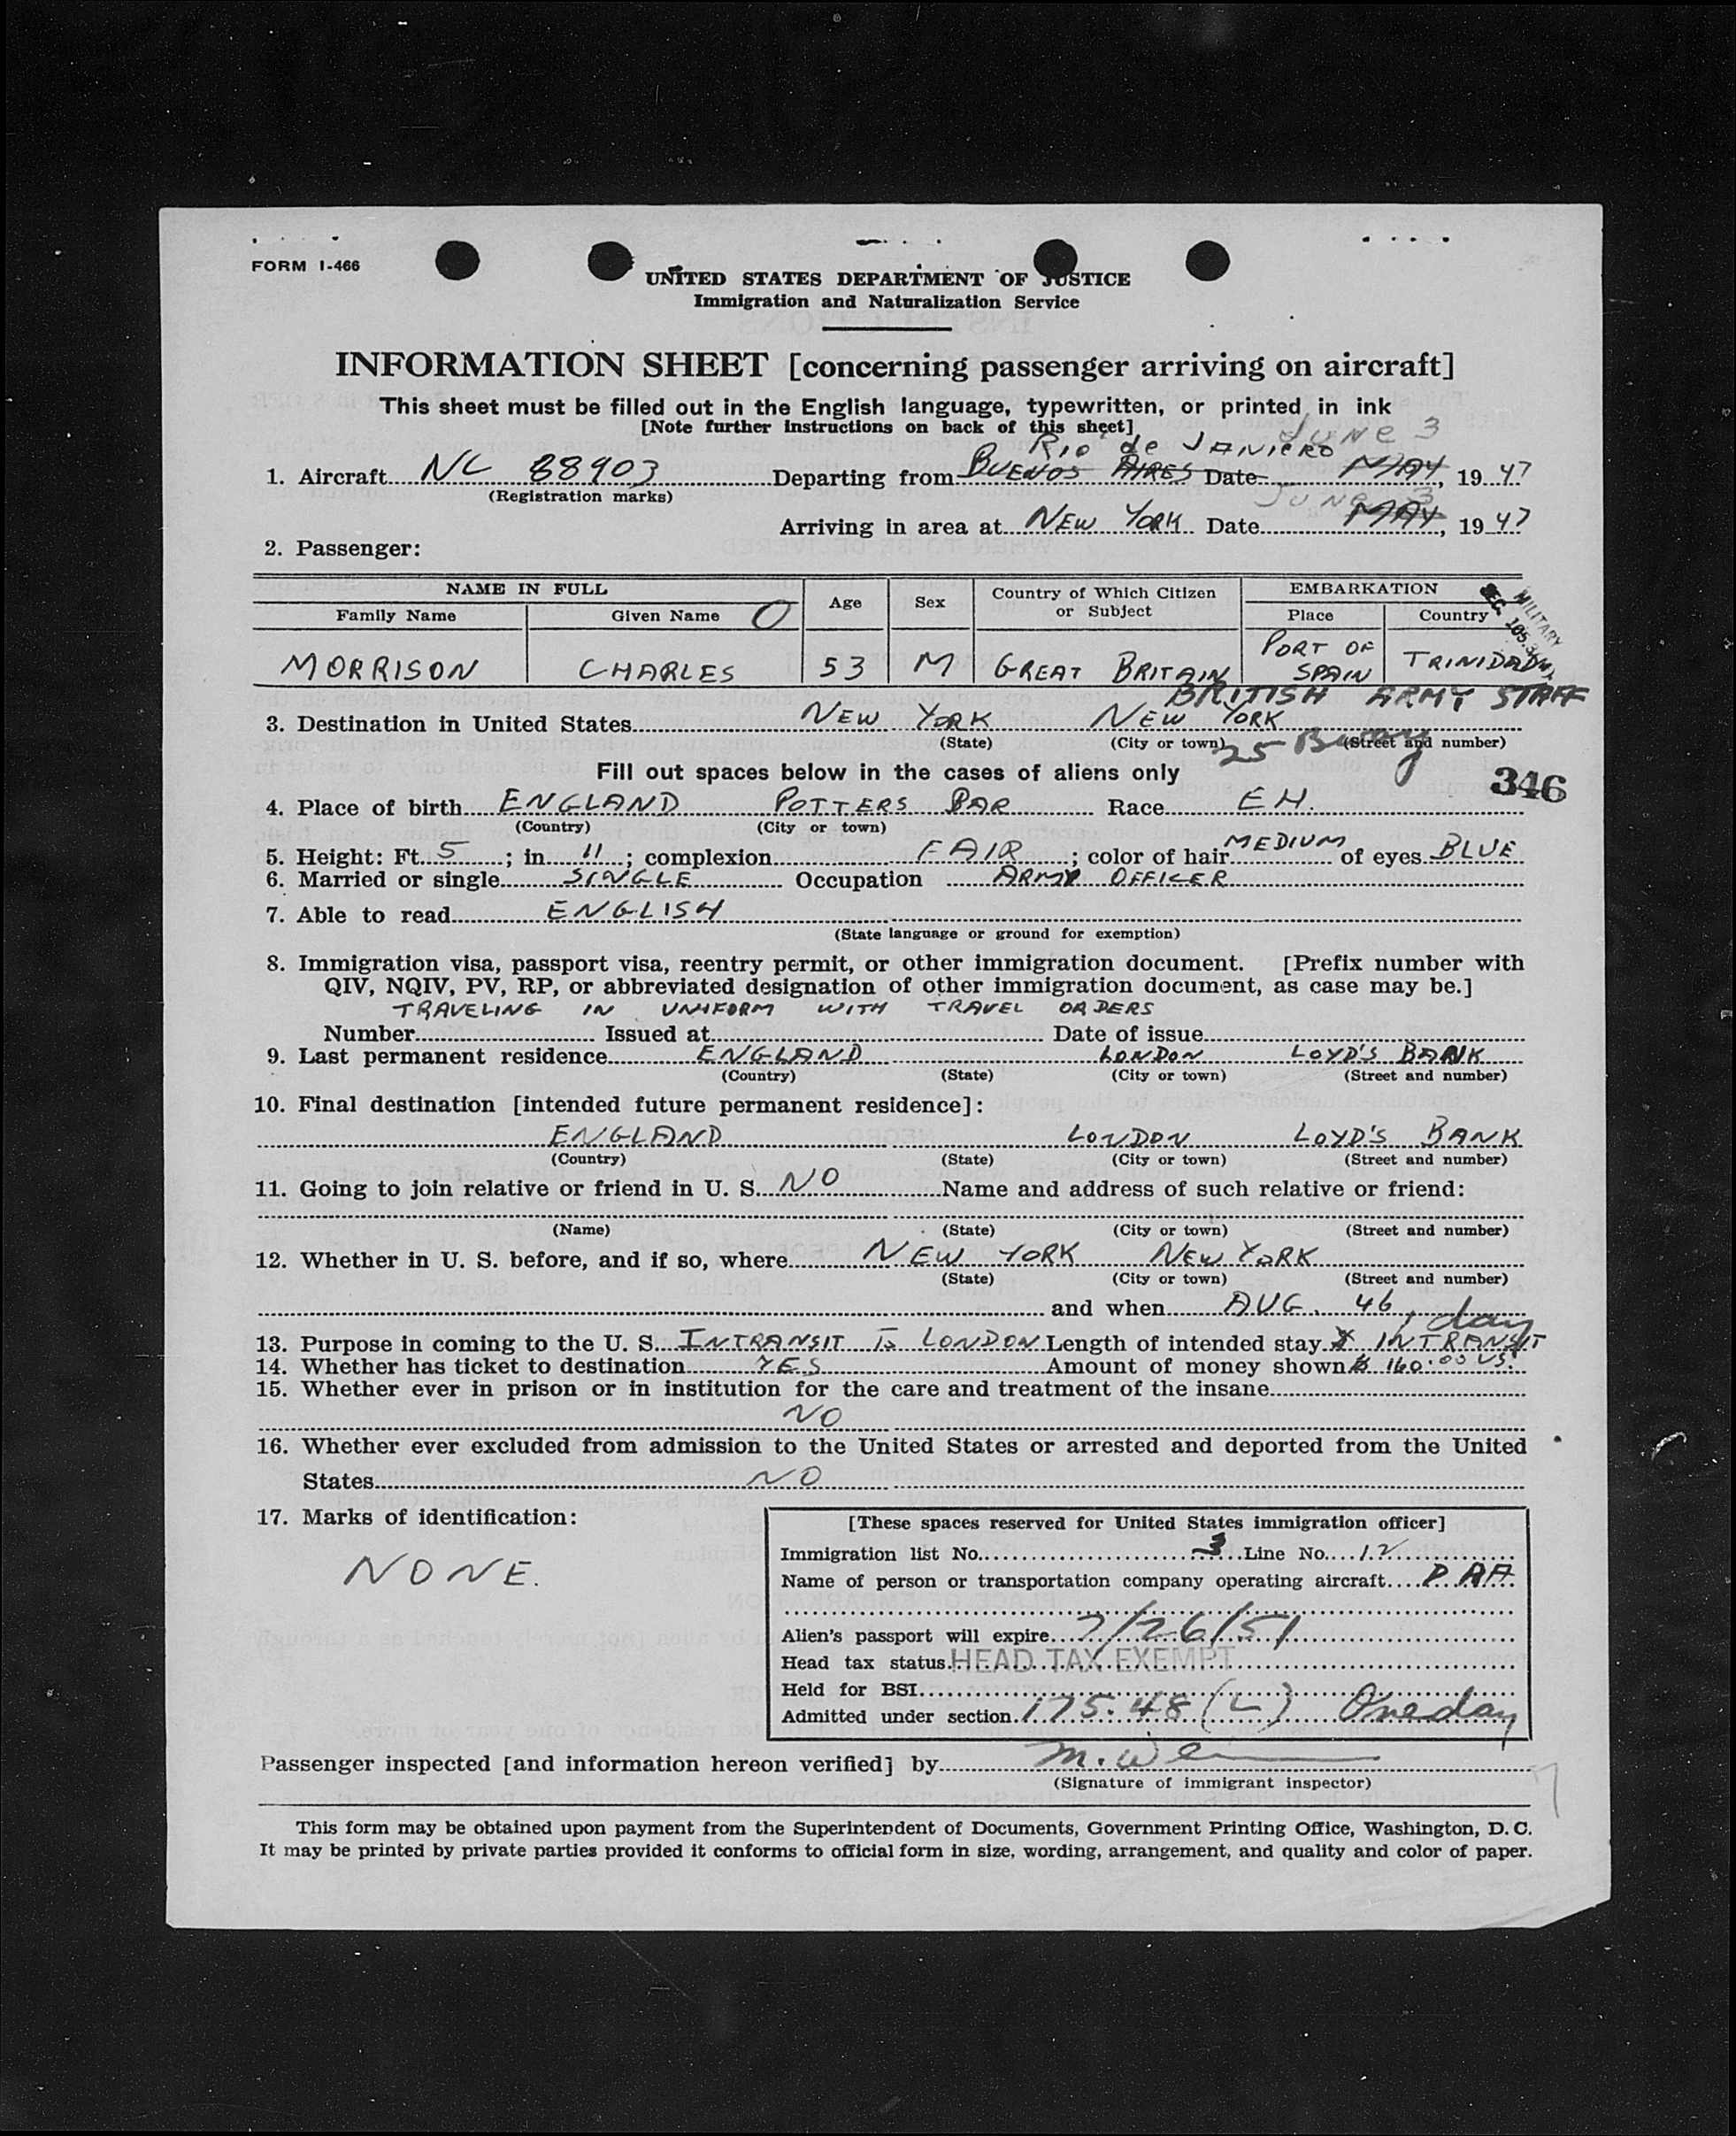 FORM I-466
UNITED STATES DEPARTMENT OF JUSTICE
Immigration and Naturalization Service
INFORMATION SHEET [concerning passenger arriving on aircraft]
This sheet must be filled out in the English language, typewritten, or printed in ink
[Note further instructions on back of this sheet]
Rio de JANIERO June 3
1. Aircraft NC 88903 Departing from BUENOS AIRES Date MAY, 19 47
(Registration marks)
June 3
Arriving in area at NEW YORK Date MAY, 19 47
2. Passenger:
NAME IN FULL Age Sex Country of Which Citizen or Subject EMBARKATION
Family Name Given Name O Place Country
MILITARY
SEC. 105.3
MORRISON CHARLES 53 M GREAT BRITAIN PORT OF SPAIN TRINIDAD
BRITISH ARMY STAFF
3. Destination in United States NEW YORK NEW YORK
(State) (City or town) (Street and number)
25
Fill out spaces below in the cases of aliens only
346
4. Place of birth ENGLAND POTTERS BAR Race EH.
(Country) (City or town)
5. Height: Ft. 5; in 11; complexion FAIR; color of hair MEDIUM of eyes BLUE
6. Married or single SINGLE Occupation ARMY OFFICER
7. Able to read ENGLISH
(State language or ground for exemption)
8. Immigration visa, passport visa, reentry permit, or other immigration document. [Prefix number with
QIV, NQIV, PV, RP, or abbreviated designation of other immigration document, as case may be.]
TRAVELING IN UNIFORM WITH TRAVEL ORDERS
Number Issued at Date of issue
9. Last permanent residence ENGLAND LONDON LOYD'S BANK
(Country) (State) (City or town) (Street and number)
10. Final destination [intended future permanent residence]:
ENGLAND LONDON LOYD'S BANK
(Country) (State) (City or town) (Street and number)
11. Going to join relative or friend in U. S. NO Name and address of such relative or friend:
(Name) (State) (City or town) (Street and number)
12. Whether in U. S. before, and if so, where NEW YORK NEW YORK
(State) (City or town) (Street and number)
and when AUG. 46
1 day
13. Purpose in coming to the U. S. INTRANSIT To LONDON Length of intended stay INTRANSIT
14. Whether has ticket to destination YES Amount of money shown $ 160.00 US.
15. Whether ever in prison or in institution for the care and treatment of the insane
NO
16. Whether ever excluded from admission to the United States or arrested and deported from the United
States NO
17. Marks of identification:
NONE.
[These spaces reserved for United States immigration officer]
Immigration list No. 3 Line No. 12
Name of person or transportation company operating aircraft PAA
Alien's passport will expire 7/26/51
Head tax status HEAD TAX EXEMPT
Held for BSI
Admitted under section 175.48 (L) One day
Passenger inspected [and information hereon verified] by
(Signature of immigrant inspector)
This form may be obtained upon payment from the Superintendent of Documents, Government Printing Office, Washington, D. C.
It may be printed by private parties provided it conforms to official form in size, wording, arrangement, and quality and color of paper.